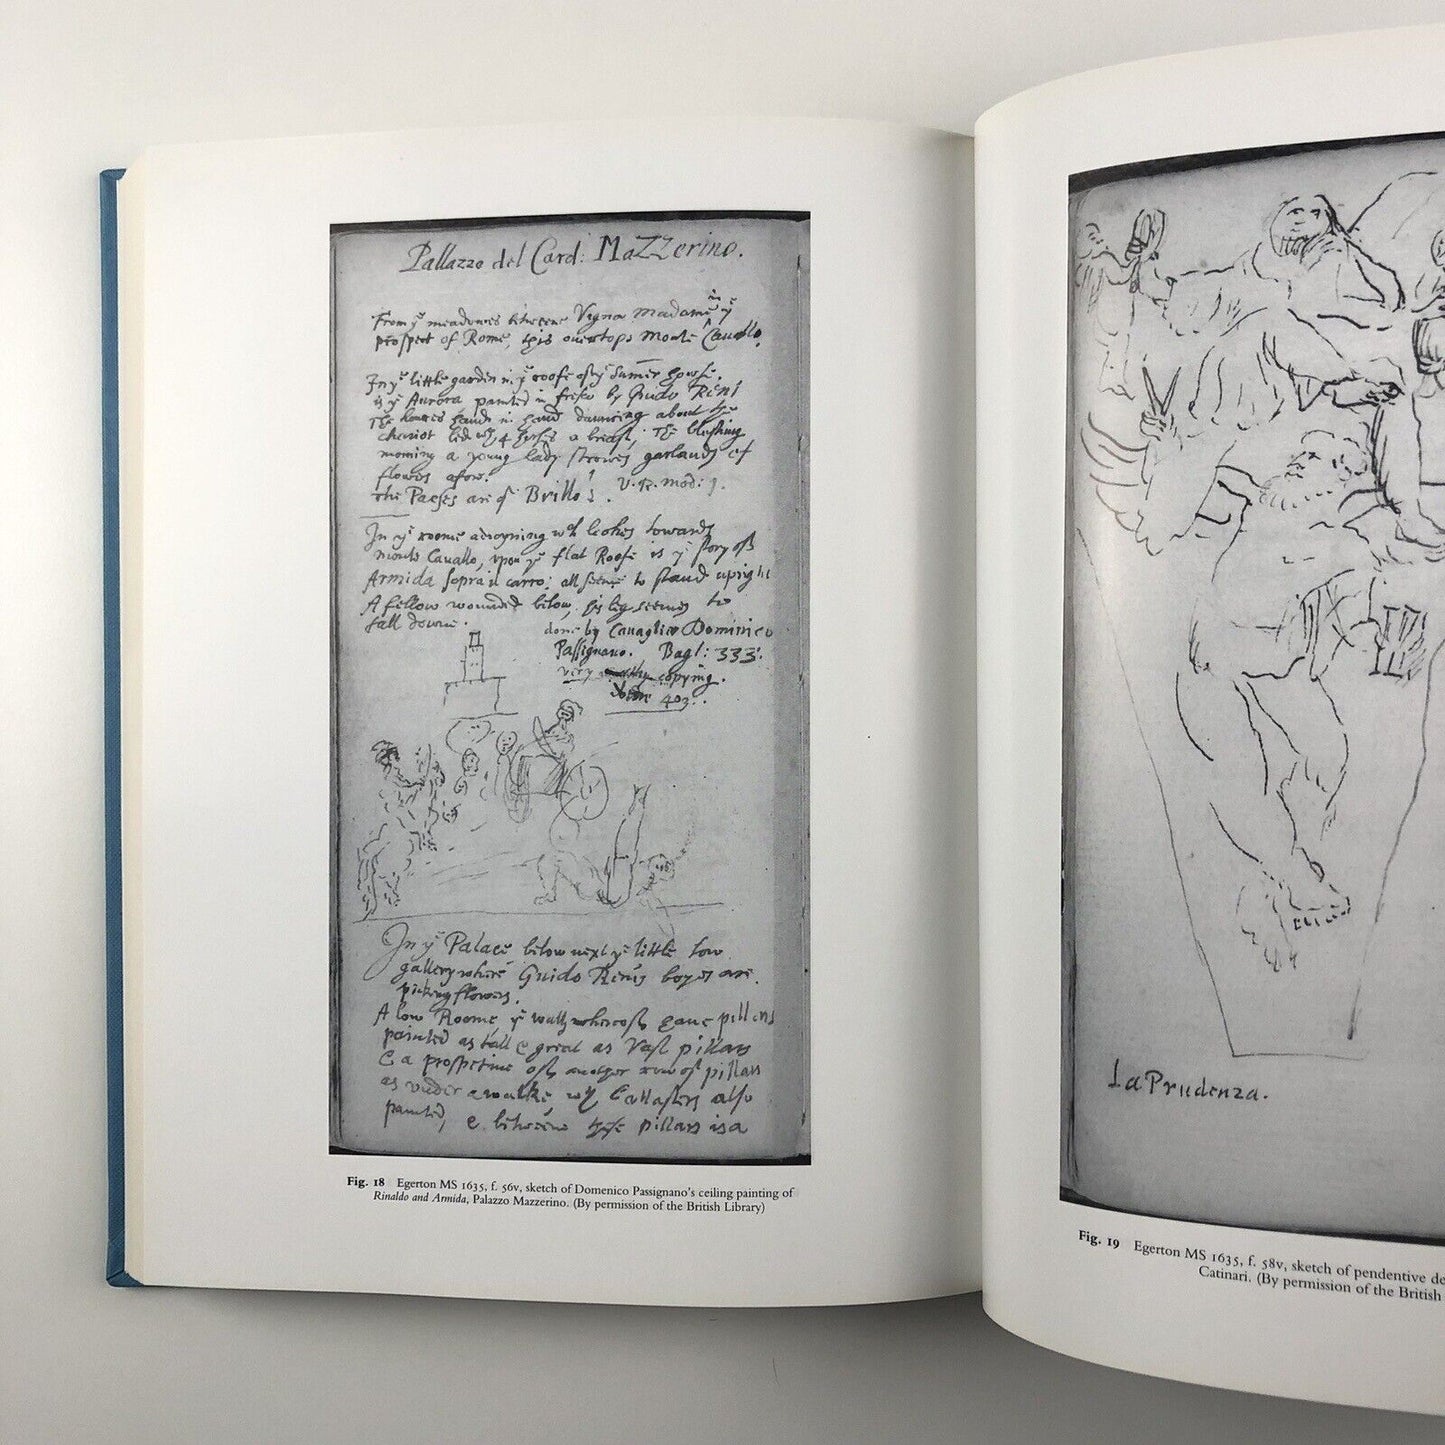 Pallazzo del Card: MaZZerino.
From yᵉ meadowes betweene Vigna Madama in yᵉ
prospect of Rome, this overtops Monte Cavallo.
In yᵉ little garden in yᵉ roofe of yᵉ Sumer house.
is yᵉ Aurora painted in fresco by Guido Reni
The howres hand in hand dauncing about the
chariot led wᵗʰ 4 horses a breast, The blushing
morning a young lady strowes garlands of
flowers afore.
The Paeses are of Brillo's. v.R. mod: 9.
In yᵉ roome adioyning wᶜʰ lookes towards
monte Cauallo, vpon yᵉ flat Roofe is yᵉ story of
Armida sopra il carro: all seeme to stand upright
A fellow wounded below, his leg seemes to
fall downe.
done by Cauaglier Dominico
Passignano. Bagl: 333.
very copying.
403.
In yᵉ Palace below next yᵉ little low
gallery where Guido Renis boyes are
picking flowers.
A low Roome yᵉ walls whereof haue pillars
painted as tall & great as Vast pillars
& a prospetiue of another row of pillars
as vnder a walke wᵗʰ ballasters also
painted, & betweene these pillars is a
Fig. 18 Egerton MS 1635, f. 56v, sketch of Domenico Passignano's ceiling painting of
Rinaldo and Armida, Palazzo Mazzerino. (By permission of the British Library)
La Prudenza.
Fig. 19 Egerton MS 1635, f. 58v, sketch of pendentive de
Catinari. (By permission of the British